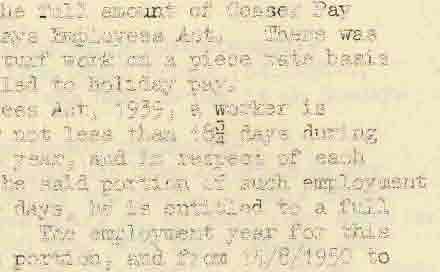 he full amount of Cesser Pay
ays Employees Act. There was
turf work on a piece rate basis
led to holiday pay.
ees Act, 1939, a worker is
not less than days during
year, and in respect of each
he said portion of such employment
days, he is entitled to a full
The employment year for this
portion, and from 14/8/1950 to